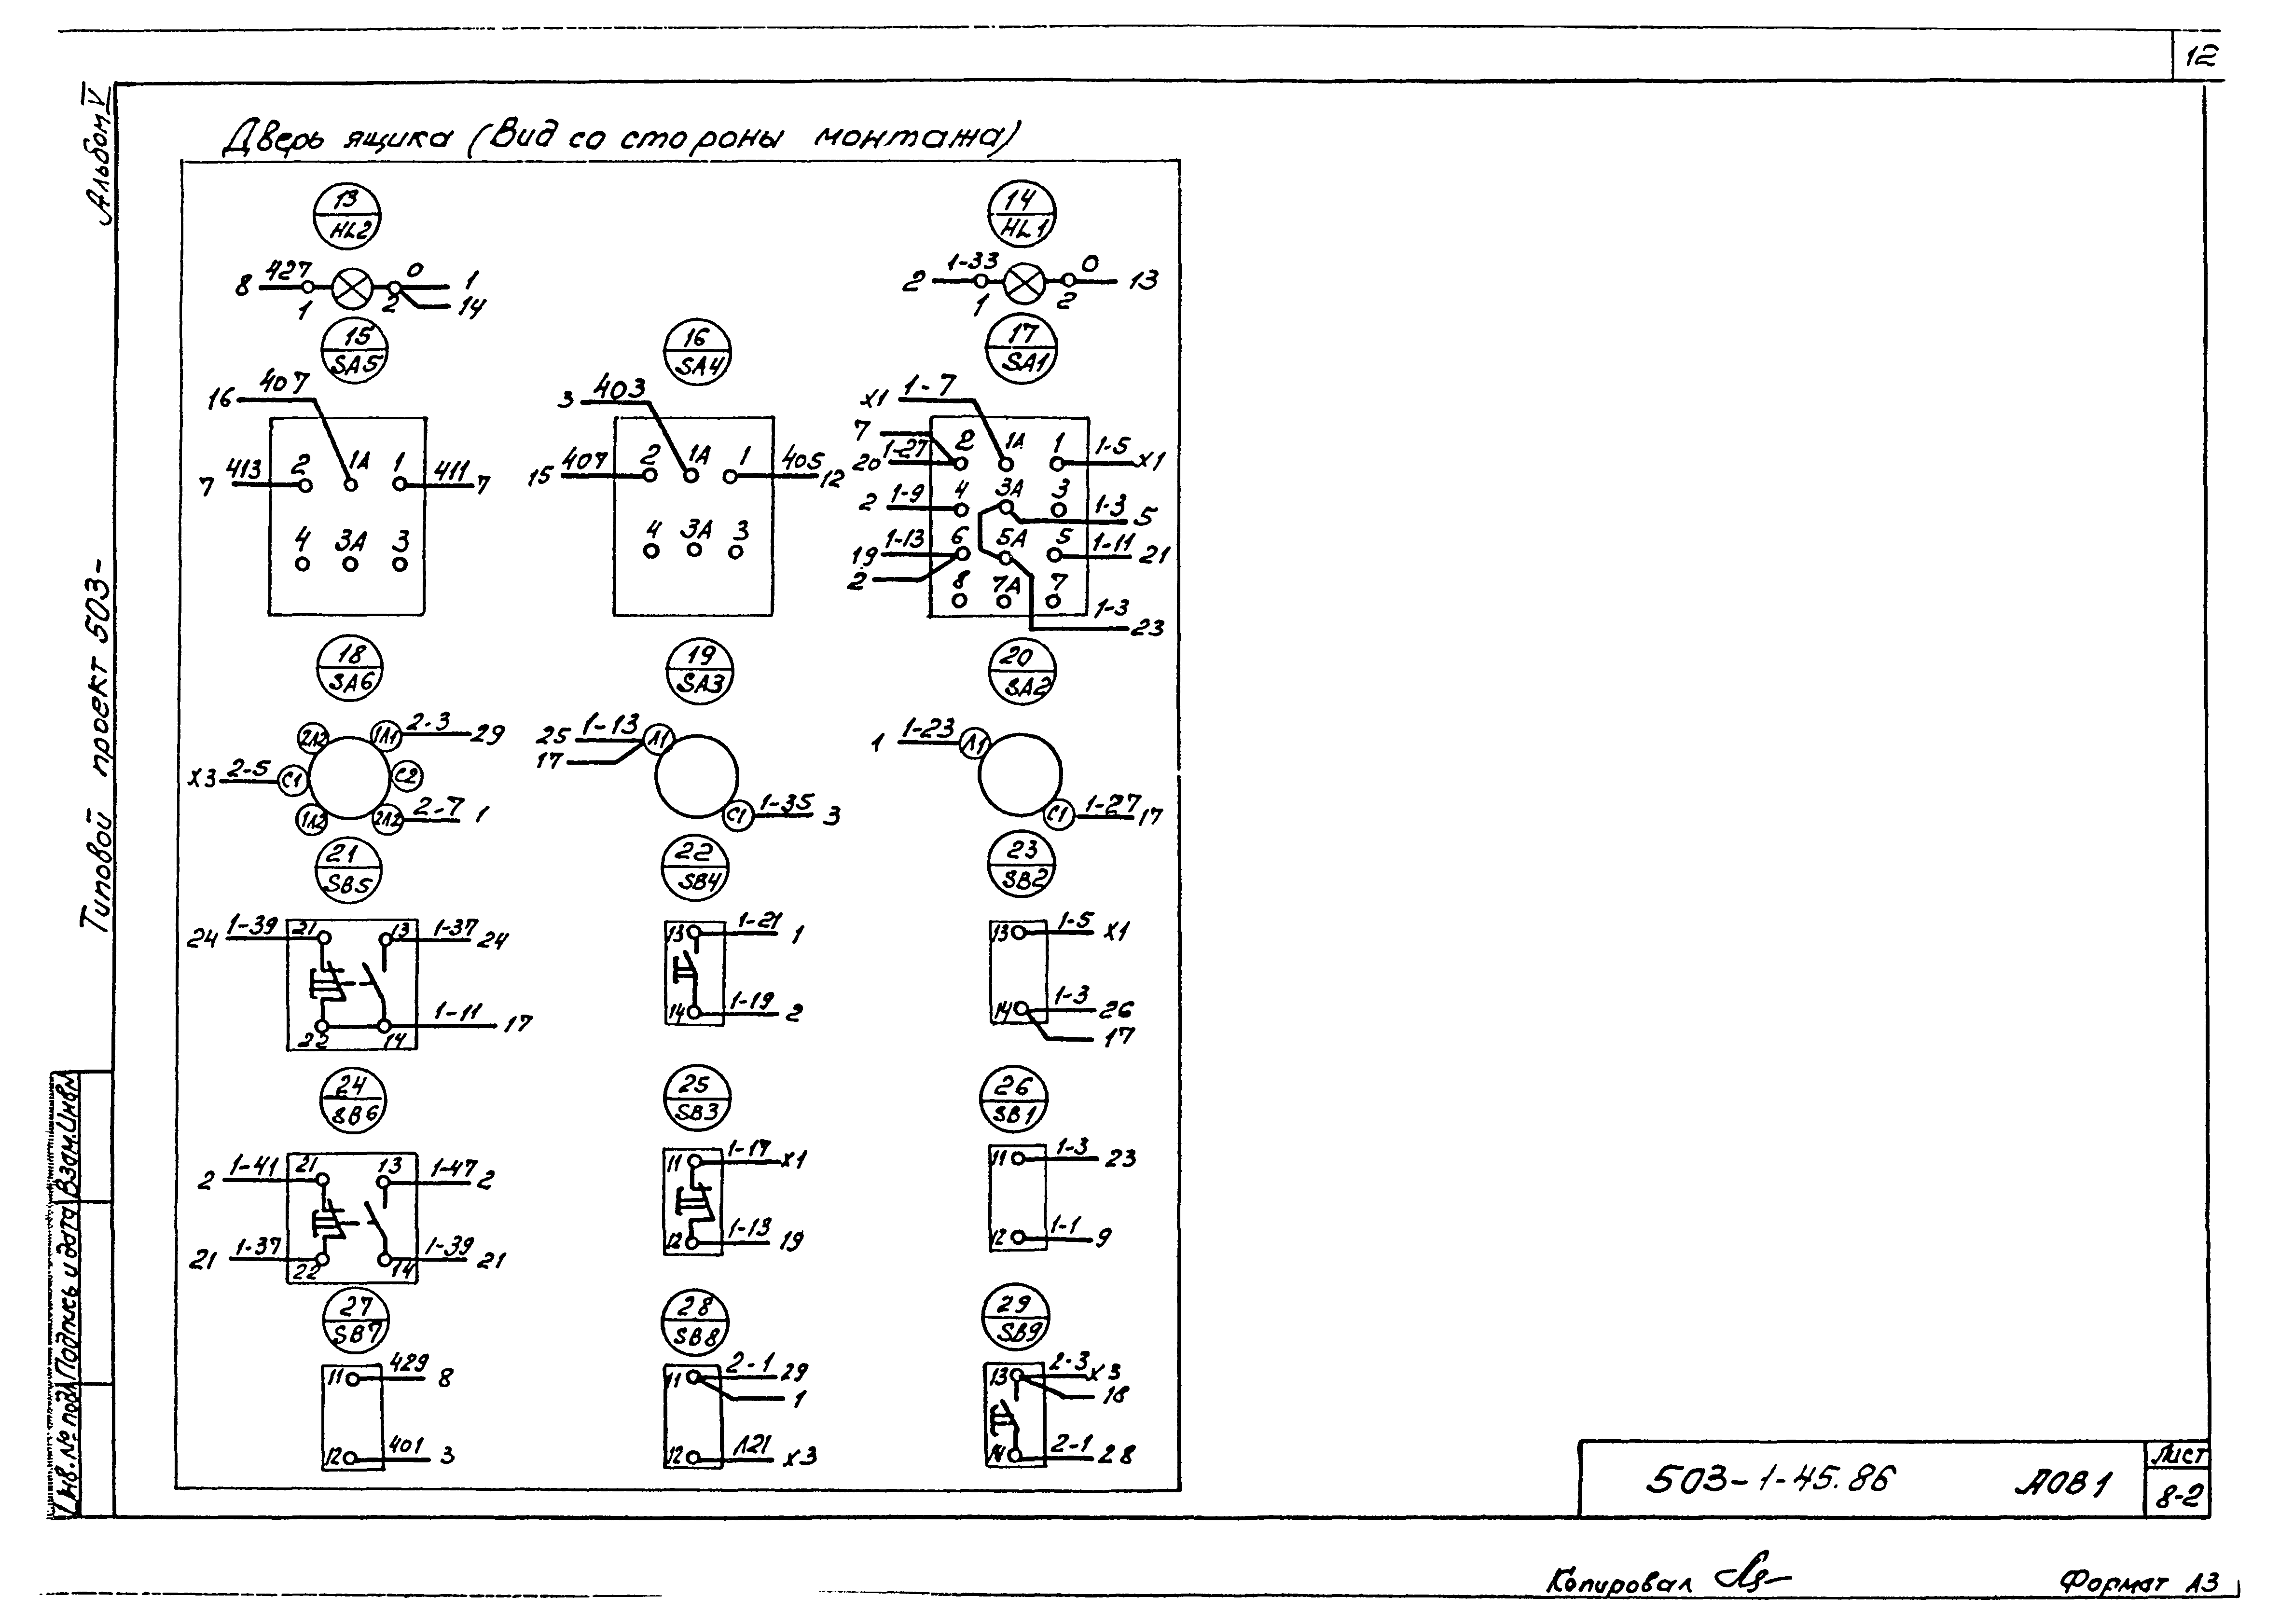 12
Альбом V
Дверь ящика (Вид со стороны монтажа)
13
HL2
14
HL1
8 427 1 2 0 1
14
2 1-33 1 2 0 13
15
SA5
16
SA4
17
SA1
16 407
3 403
X1 1-7
7 413 2 1A 1 411 7
4 3A 3
15 407 2 1A 1 405 12
4 3A 3
7
20 1-27 2 1A 1 1-5 X1
2 1-9 4 3A 3 1-3 5
19 1-13 6 5A 5 1-11 21
2
8 7A 7
1-3 23
18
SA6
19
SA3
20
SA2
2Л2 1Л1 2-3 29
X3 2-5 С1 С2
1Л2 2Л2 2-7 1
25 1-13 Л1
17
С1 1-35 3
1 1-23 Л1
С1 1-27 17
21
SB5
22
SB4
23
SB2
24 1-39 21 13 1-37 24
22 14 1-11 17
13 1-21 1
14 1-19 2
13 1-5 X1
14 1-3 26
17
24
SB6
25
SB3
26
SB1
2 1-41 21 13 1-47 2
21 1-37 22 14 1-39 21
11 1-17 X1
12 1-13 19
11 1-3 23
12 1-1 9
27
SB7
28
SB8
29
SB9
11 429 8
12 401 3
11 2-1 29
1
12 Л21 X3
13 2-3 X3
18
14 2-1 28
Типовой проект 503-
Инв.№ подл Подпись и дата Взам.Инв№
503-1-45.86 АОВ1
Лист
8-2
Копировал
Формат А3